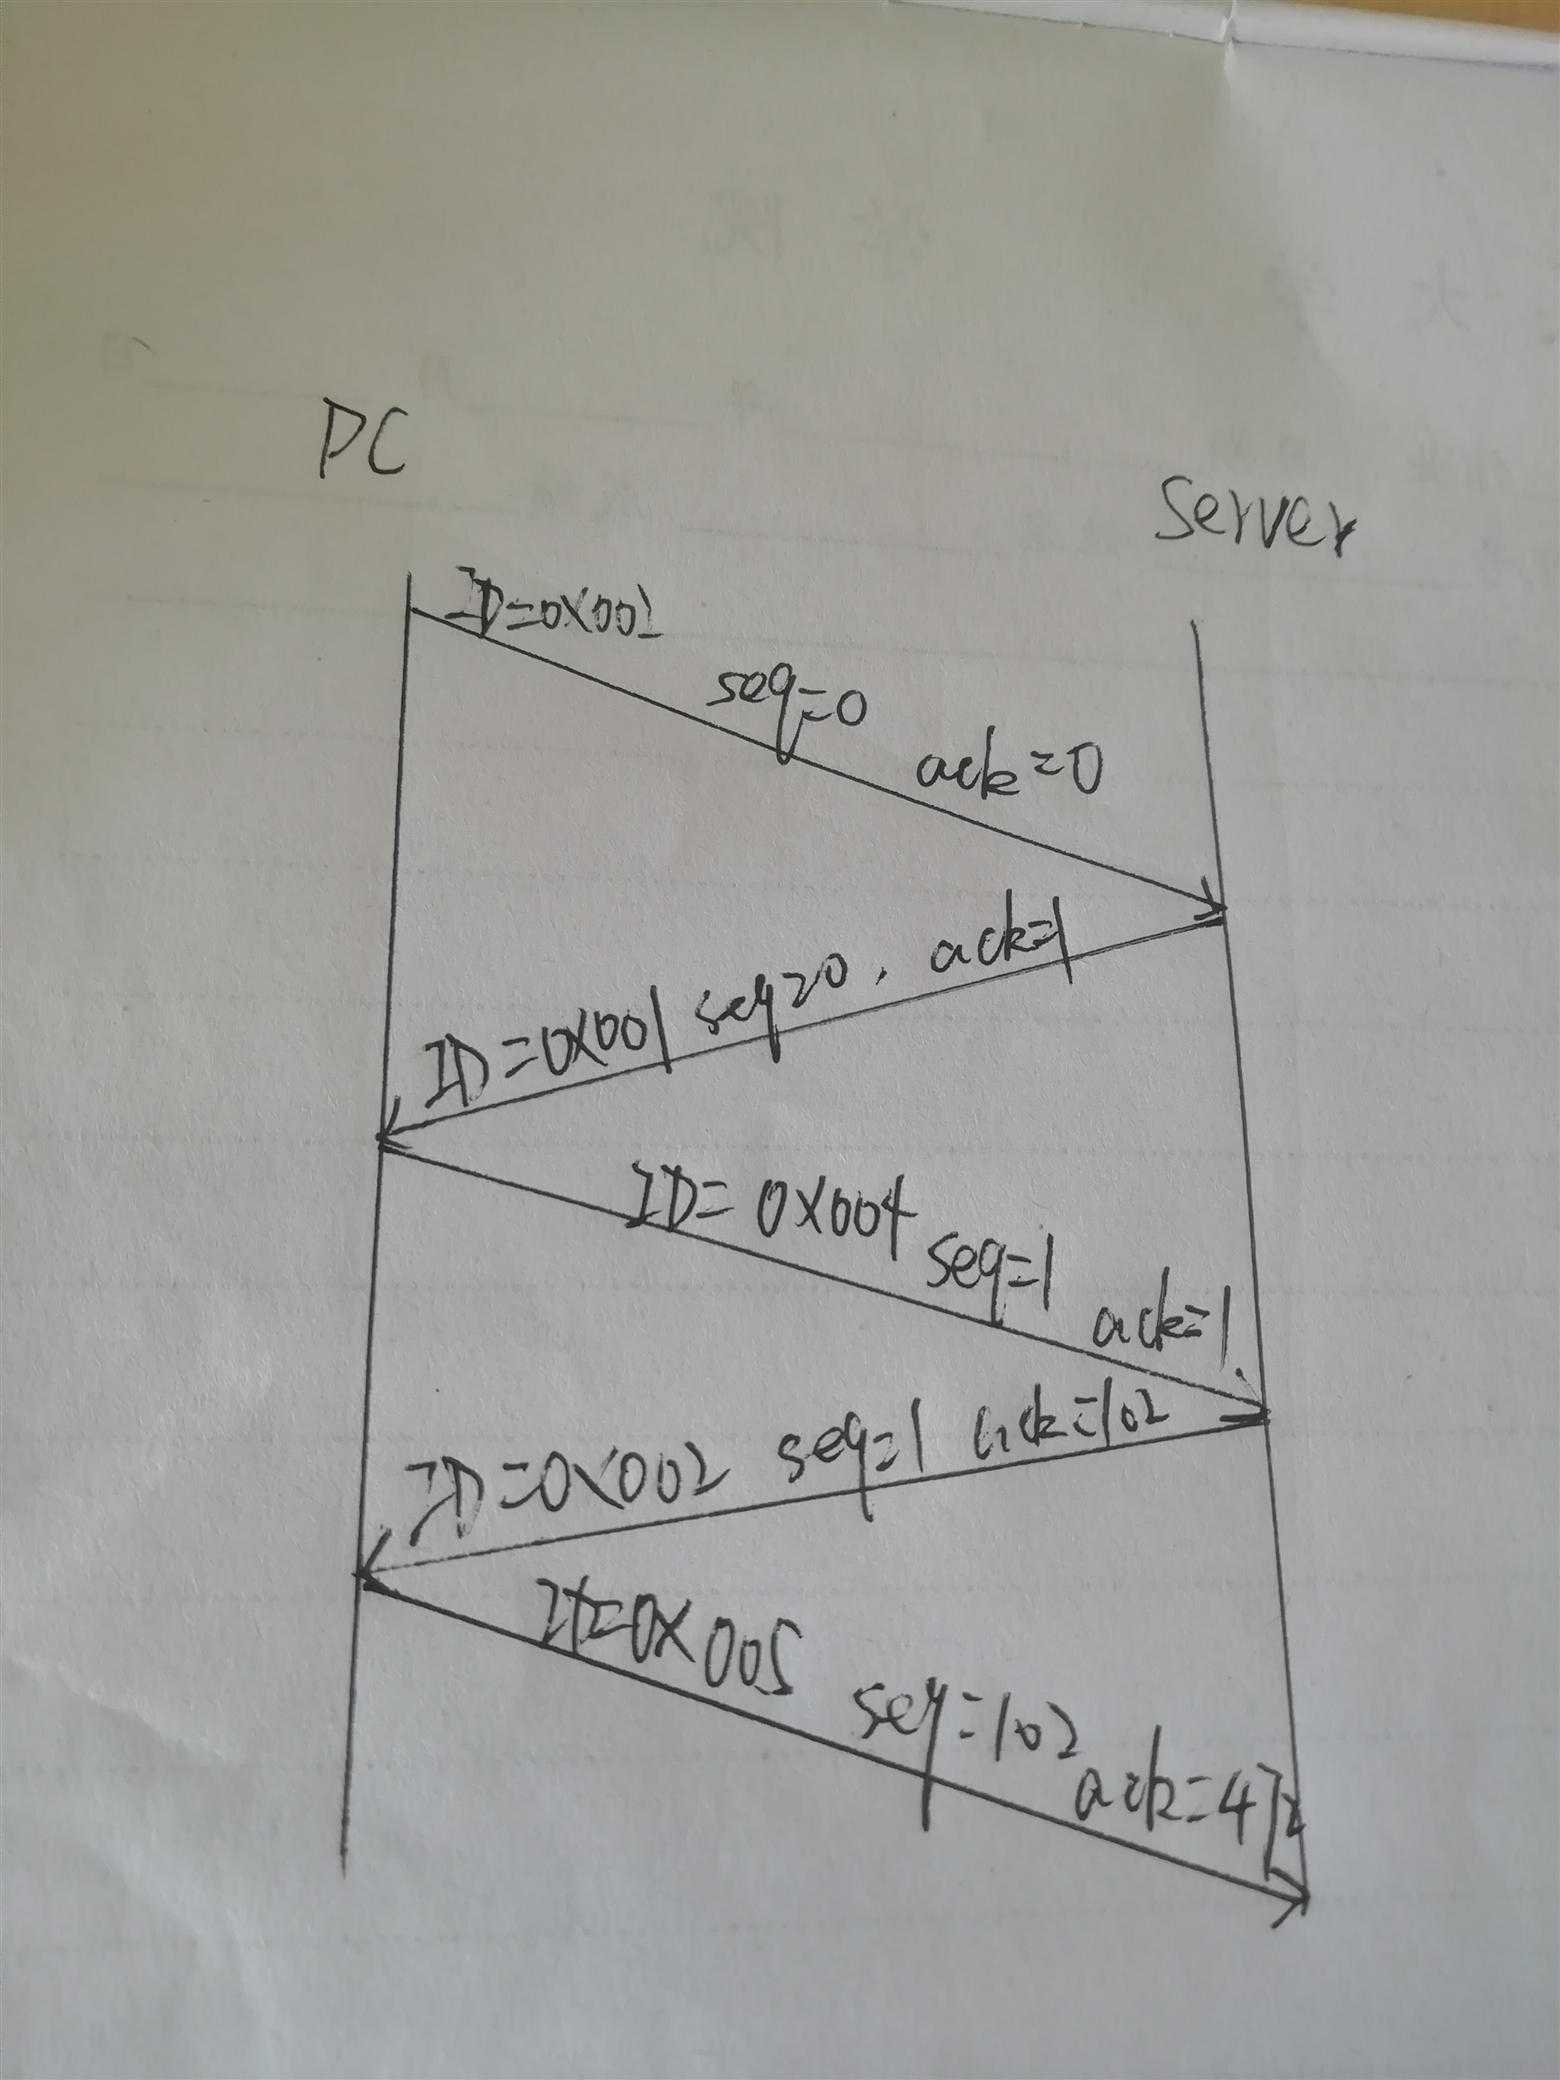 PC
Server
ID=0x002
seq=0
ack=0
ID=0x001 seq=0, ack=1
ID=0x004 seq=1 ack=1
ID=0x002 seq=1 ack=102
ID=0x005
seq=102